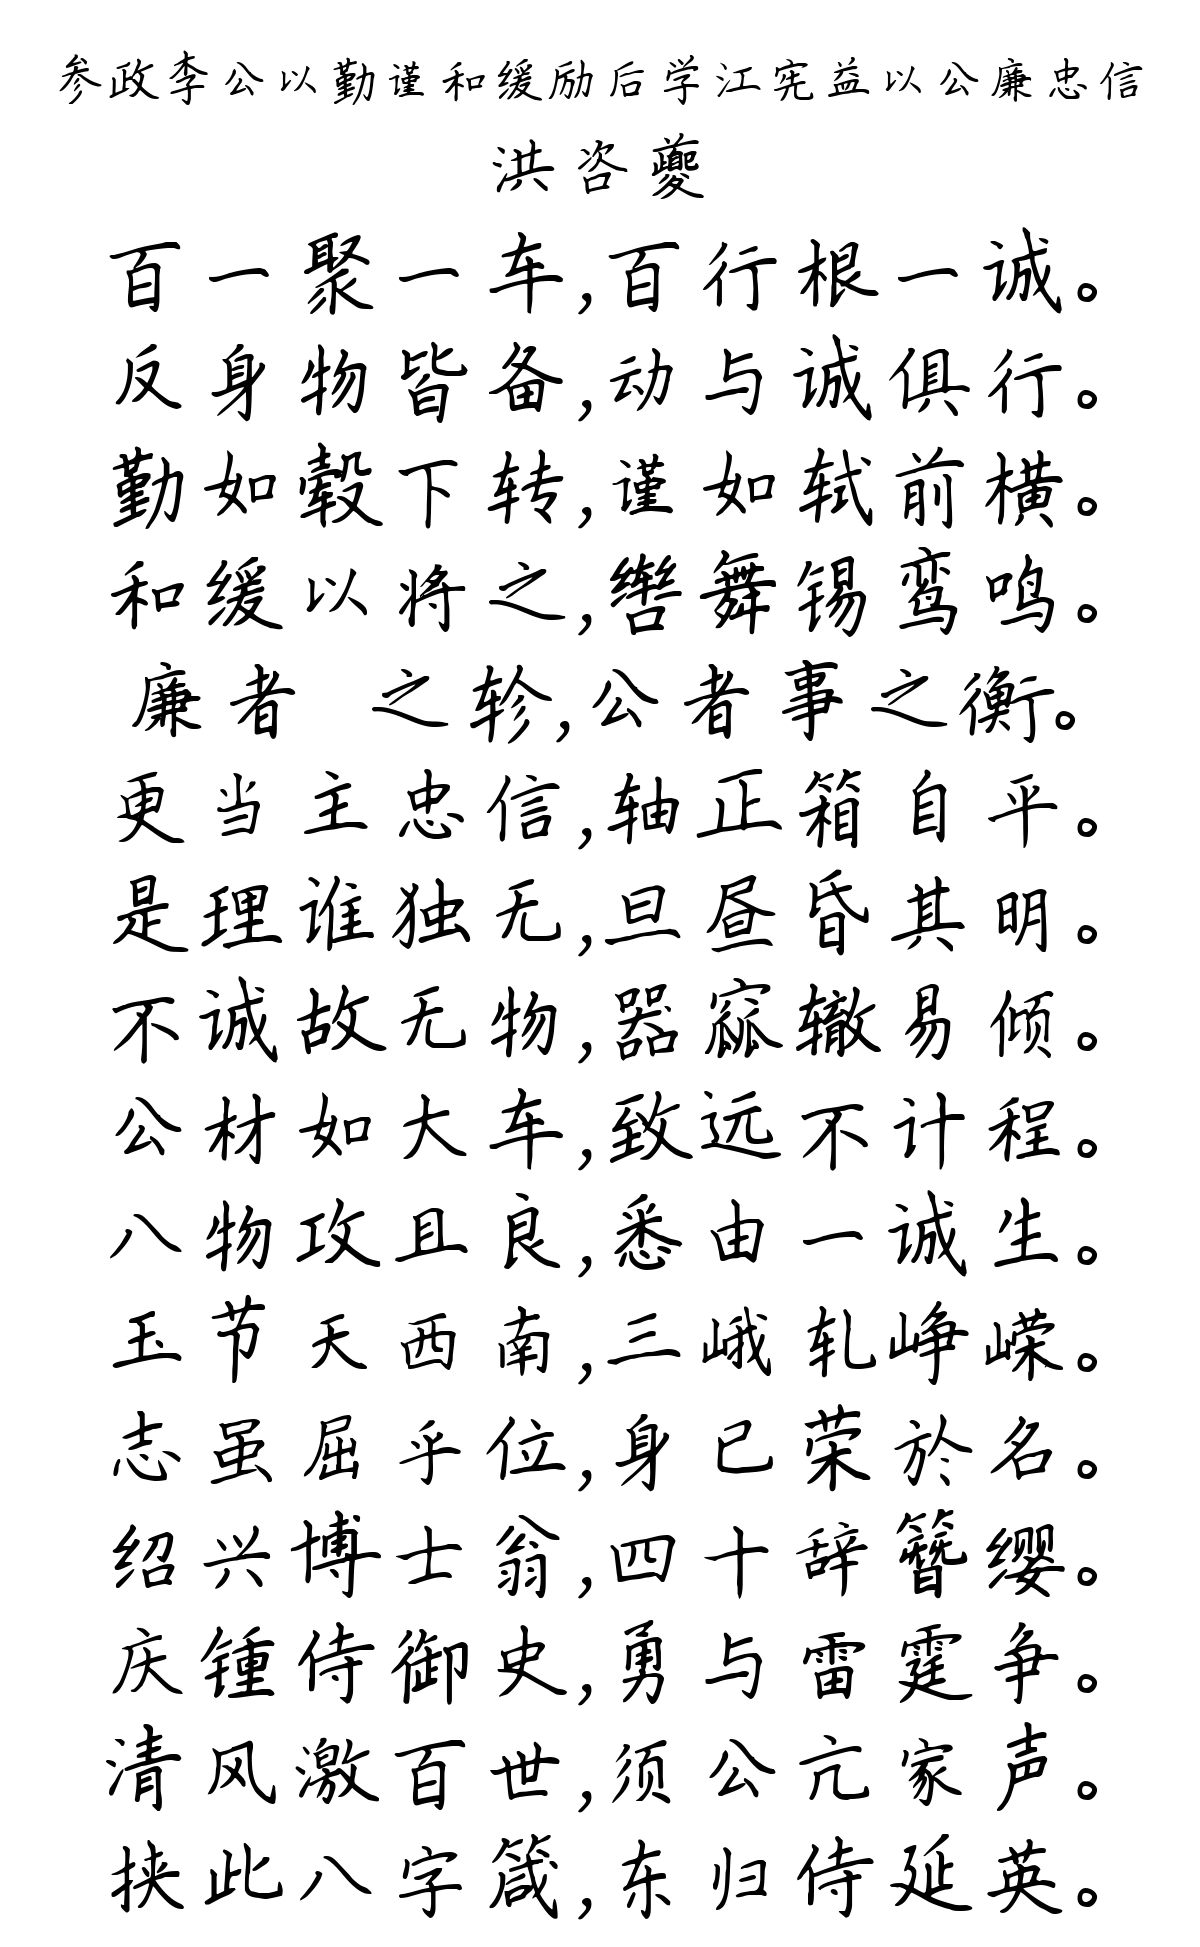 参政李公以勤谨和缓励后学江宪益以公廉忠信
洪咨夔
百一聚一车,百行根一诚。
反身物皆备,动与诚俱行。
勤如毂下转,谨如轼前横。
和缓以将之,辔舞锡鸾鸣。
廉者 之轸,公者事之衡。
更当主忠信,轴正箱自平。
是理谁独无,旦昼昏其明。
不诚故无物,器窳辙易倾。
公材如大车,致远不计程。
八物攻且良,悉由一诚生。
玉节天西南,三峨轧峥嵘。
志虽屈乎位,身已荣於名。
绍兴博士翁,四十辞簪缨。
庆锺侍御史,勇与雷霆争。
清风激百世,须公亢家声。
挟此八字箴,东归侍延英。